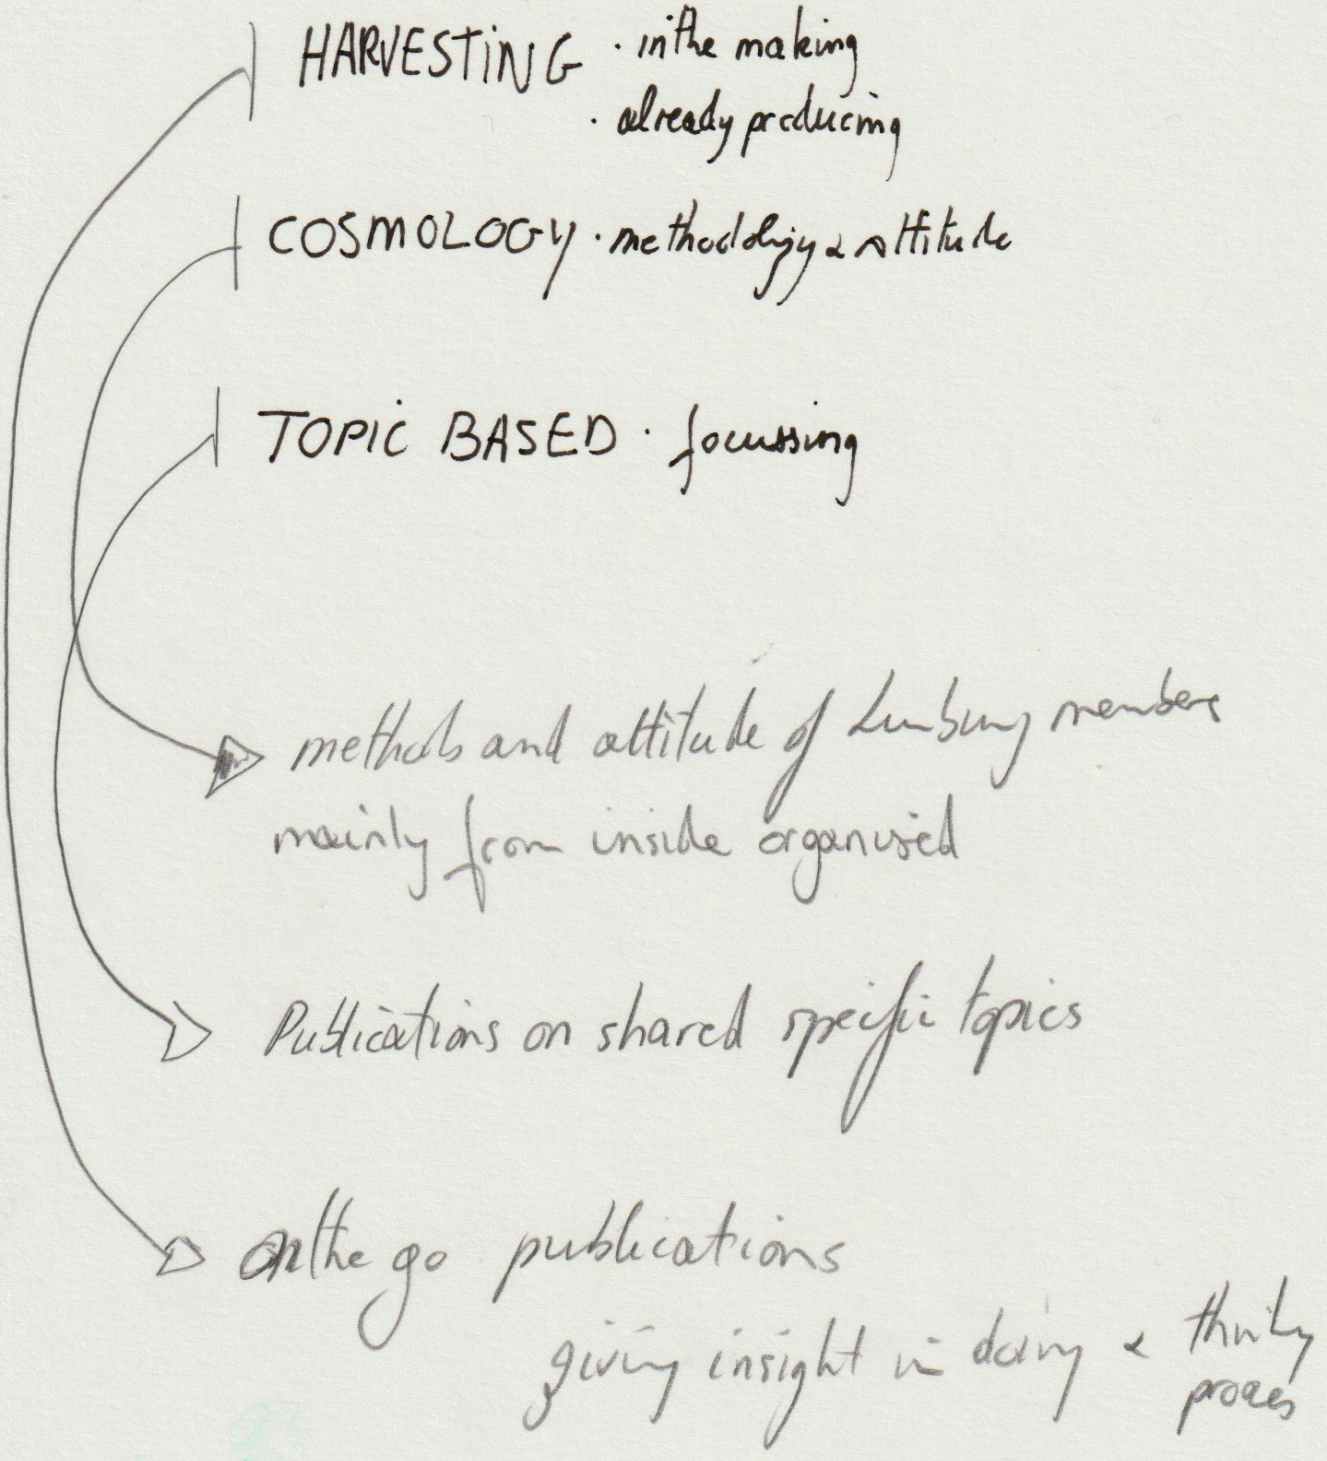 HARVESTING · in the making
· already producing
COSMOLOGY · methodology & attitude
TOPIC BASED · focussing
methods and attitude of Lumbung members
mainly from inside organised
Publications on shared specific topics
On the go publications
giving insight in doing & thinking
proces